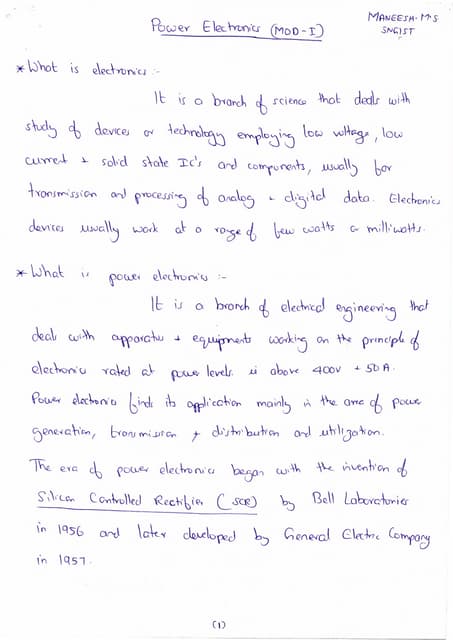 Power Electronics (MOD-I)
MANEESH. M.S
SNGIST
* What is electronics :-
It is a branch of science that deals with
study of devices or technology employing low voltage, low
current + solid state IC's and components, usually for
transmission and processing of analog + digital data. Electronics
devices usually work at a range of few watts or milliwatts.
* What is power electronics :-
It is a branch of electrical engineering that
deals with apparatus + equipments working on the principle of
electronics rated at power levels ie above 400V + 50A.
Power electronics finds its application mainly in the area of power
generation, transmission + distribution and utilization.
The era of power electronics began with the invention of
Silicon Controlled Rectifier (SCR) by Bell Laboratories
in 1956 and later developed by General Electric Company
in 1957.
(1)